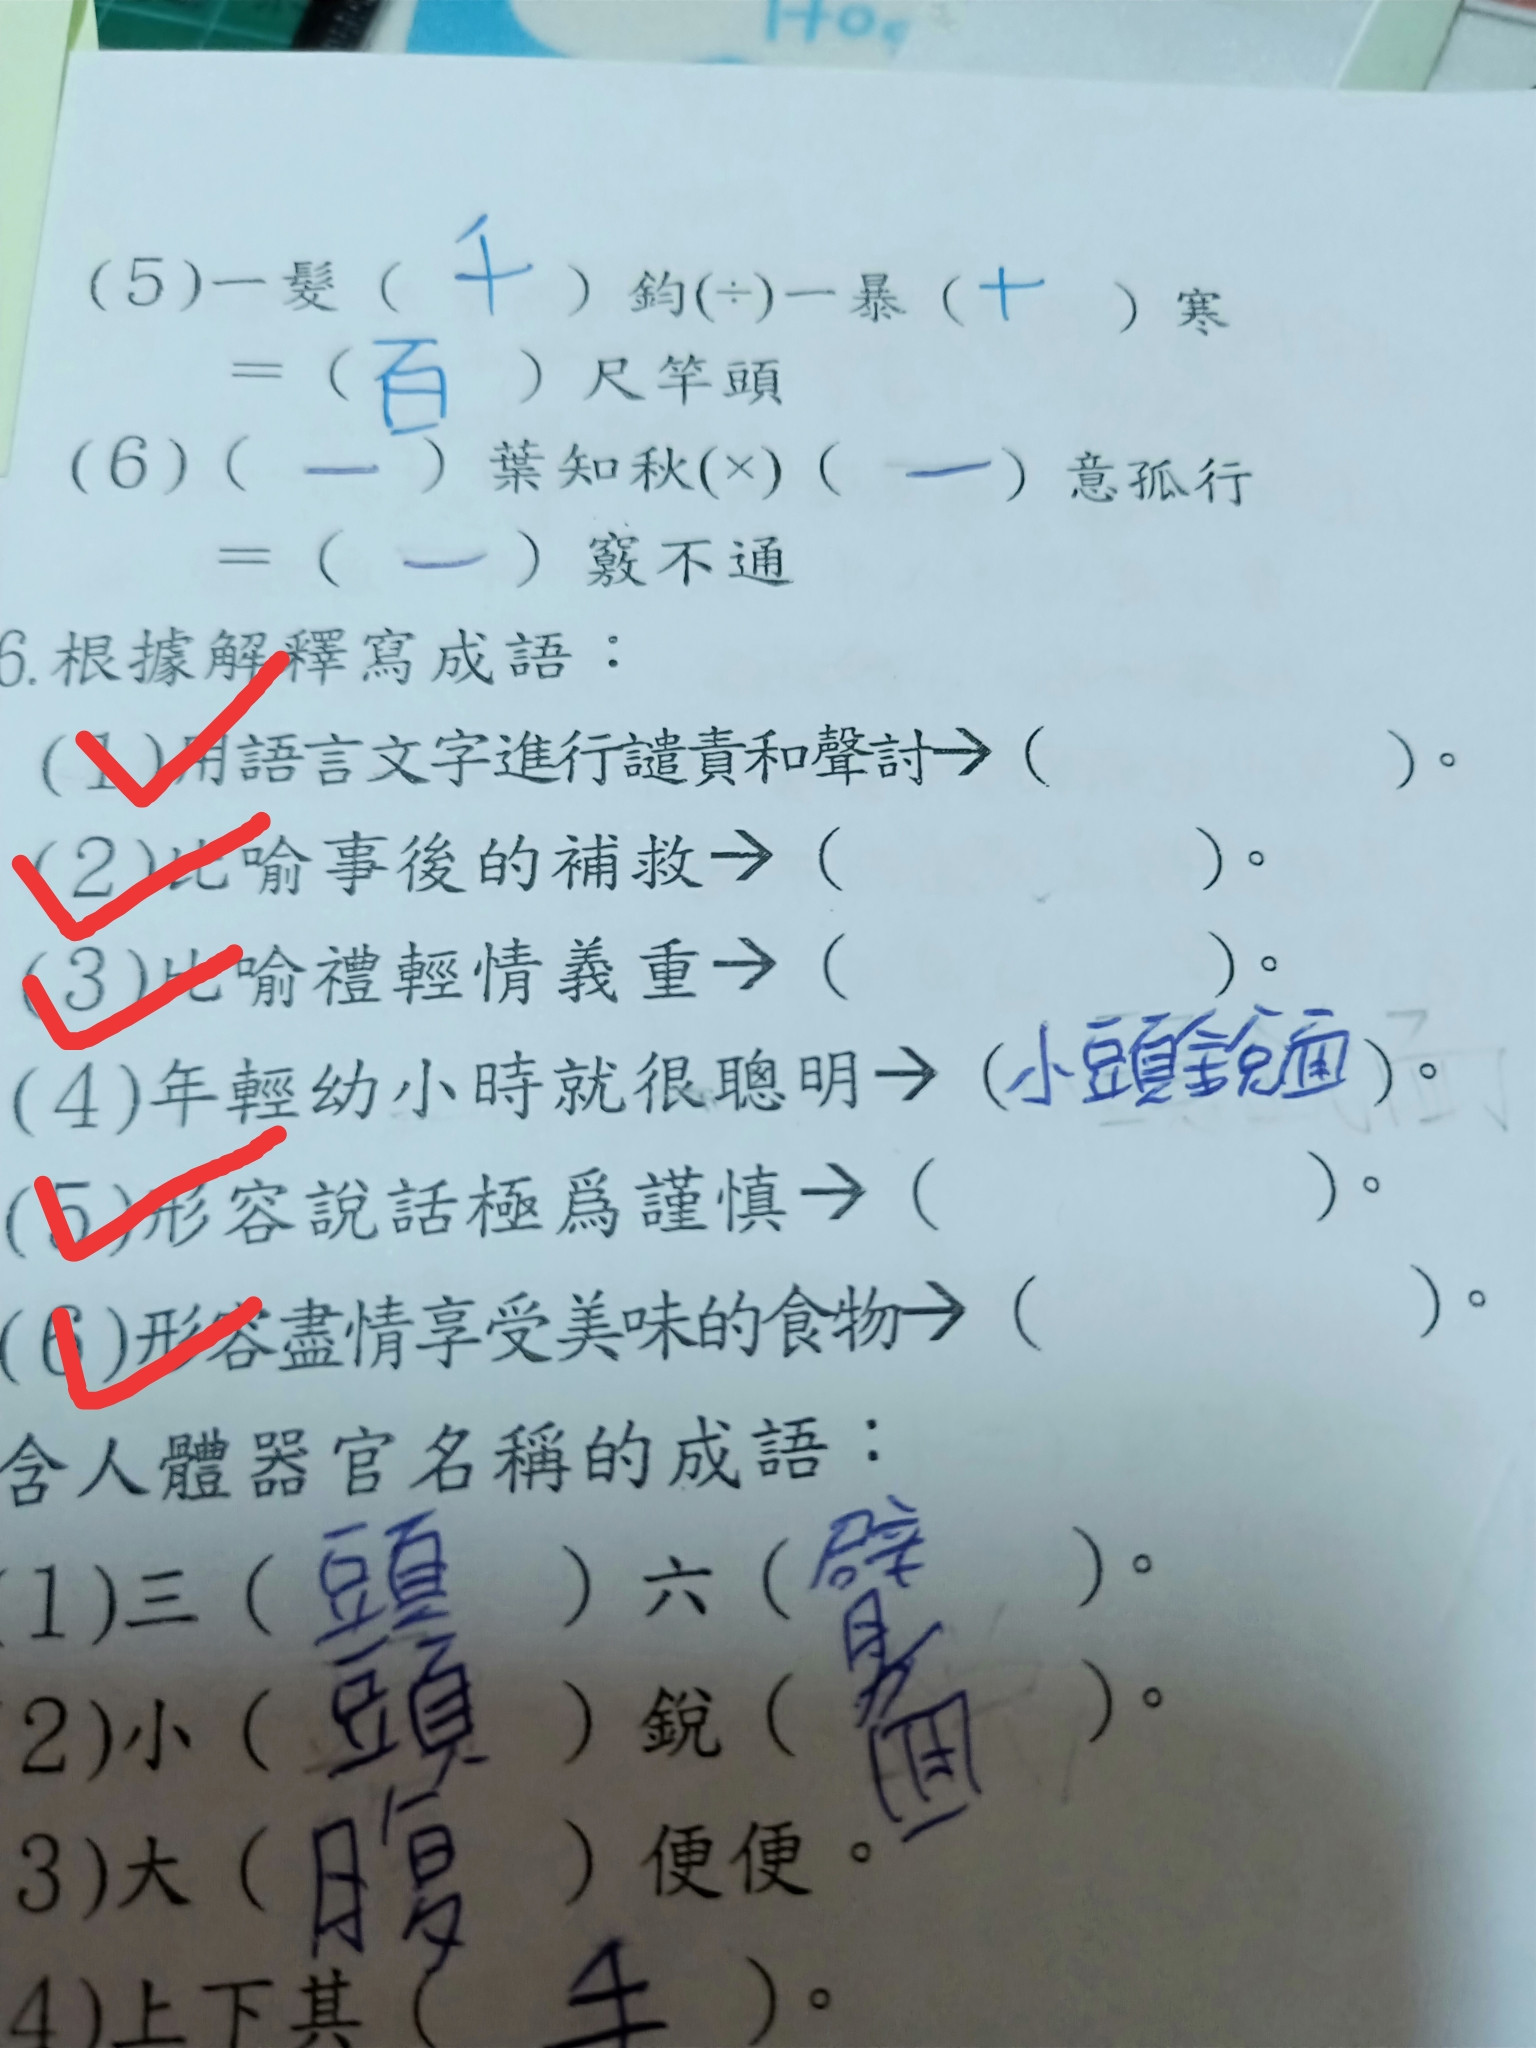 Hos
(5)一髮(千)鈞(÷)一暴(十)寒
=(百)尺竿頭
(6)(一)葉知秋(×)(一)意孤行
=(一)竅不通
6.根據解釋寫成語：
(1)用語言文字進行譴責和聲討→( )。
(2)比喻事後的補救→( )。
(3)比喻禮輕情義重→( )。
(4)年輕幼小時就很聰明→(小頭銳面)。
(5)形容說話極為謹慎→( )。
(6)形容盡情享受美味的食物→( )。
含人體器官名稱的成語：
(1)三(頭)六(臂)。
2)小(頭)銳(面)。
3)大(腹)便便。
4)上下其(手)。